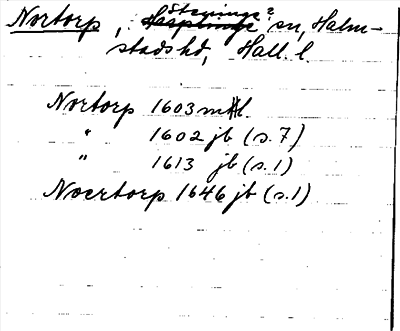 Nortorp, Steninge? sn, Halm-
stads hd, Hall. l.
Nortorp 1603 mtl.
" 1602 jb (s. 7)
" 1613 jb (s. 1)
Noertorp 1646 jb (s. 1)